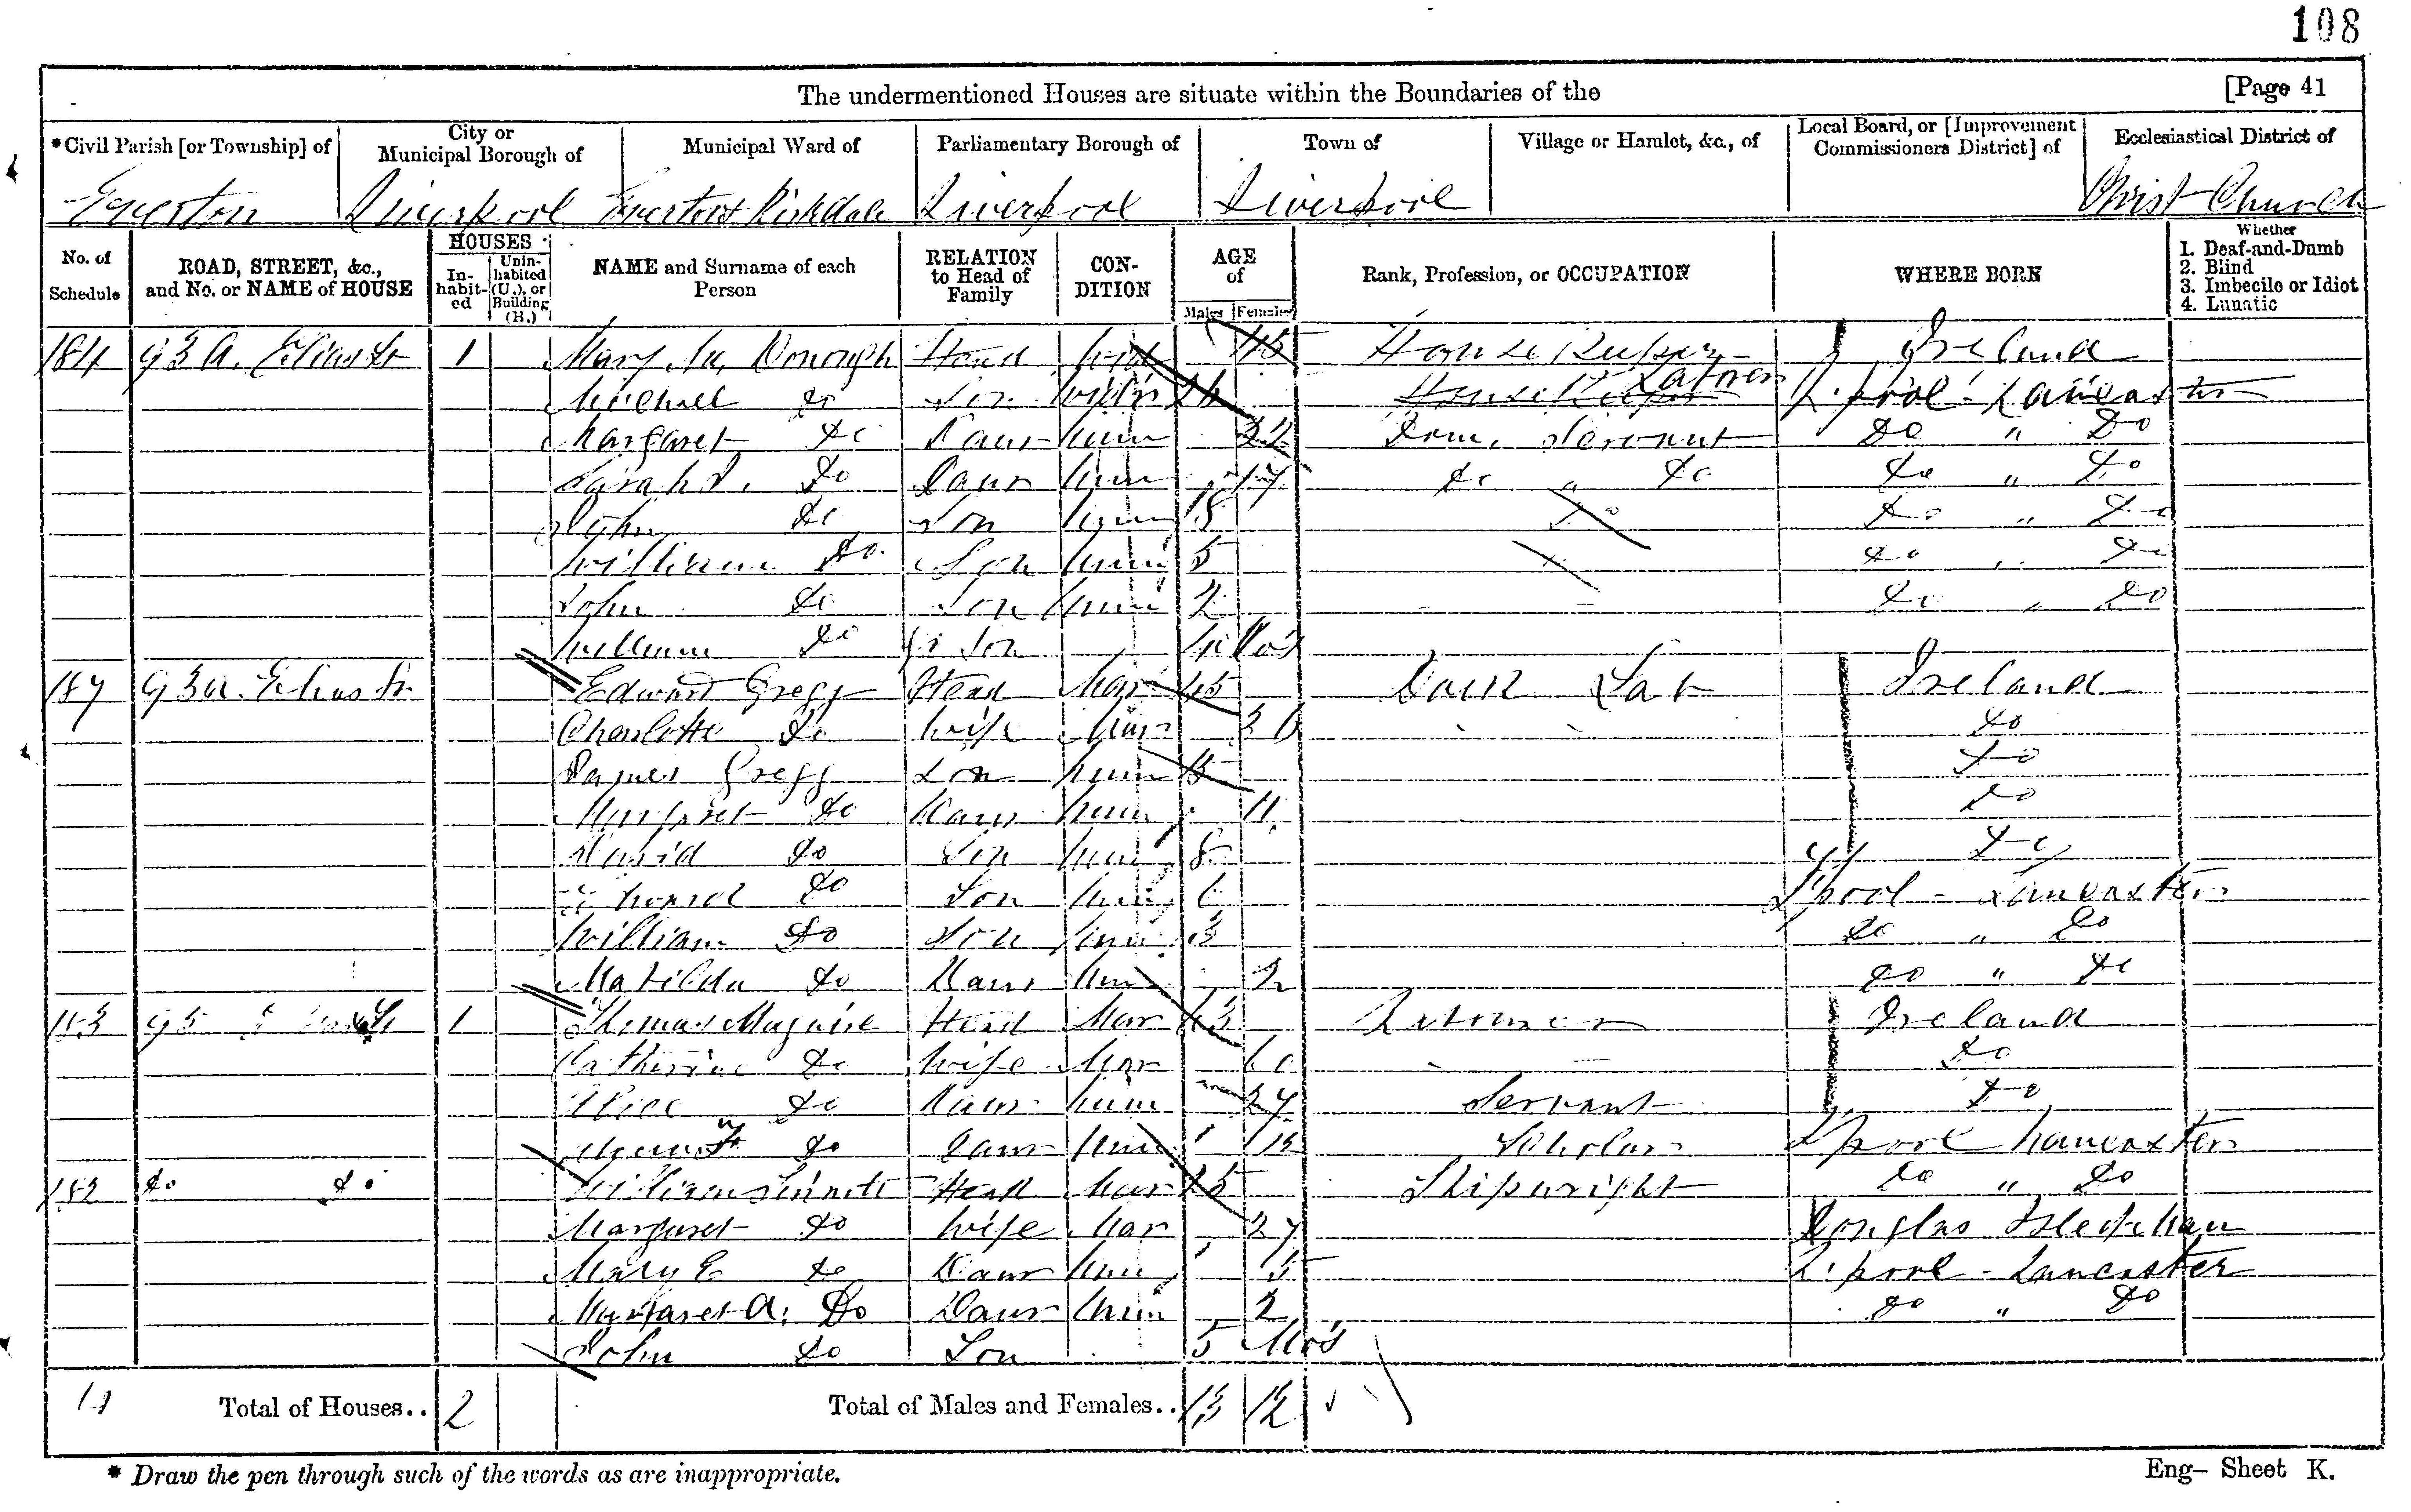 108
The undermentioned Houses are situate within the Boundaries of the [Page 41
*Civil Parish [or Township] of City or Municipal Borough of Municipal Ward of Parliamentary Borough of Town of Village or Hamlet, &c., of Local Board, or [Improvement Commissioners District] of Ecclesiastical District of
Everton Liverpool Everton & Kirkdale Liverpool Liverpool Christ Church
No. of Schedule ROAD, STREET, &c., and No. or NAME of HOUSE HOUSES Inhabited Uninhabited (U.), or Building (B.) NAME and Surname of each Person RELATION to Head of Family CONDITION AGE of Males Females Rank, Profession, or OCCUPATION WHERE BORN Whether 1. Deaf-and-Dumb 2. Blind 3. Imbecile or Idiot 4. Lunatic
184 93A. Elias St 1 Mary Mc Donough Head Wid 45 House Keeper Ireland
Michael do Son Labourer L'pool - Lancaster
Margaret do Daur Unm 22 Dom. Servant do " do
Sarah do Daur Unm 17 do " do do " do
John do Son Unm do do " do
William do Son Unm 5 do " do
John do Son Unm 2 do " do
William do Gr Son Mo's
187 93A. Elias St Edward Gregg Head Mar 45 Dock Lab Ireland
Charlotte do Wife Mar do
James Gregg Son Unm 15 do
Margaret do Daur Unm 11 do
David do Son Unm 8 do
do Son Unm 6 L'pool - Lancaster
William do Son Unm 3 do " do
Matilda do Daur Unm 2 do " do
183 95 1 Thomas Maguire Head Mar Labourer Ireland
Catherine do Wife Mar 60 do
Alice do Daur Unm 27 Servant do
do Daur Unm Scholar L'pool Lancaster
182 do do William Sinnott Head Mar 25 Shipwright do " do
Margaret do Wife Mar 27 Douglas Isle of Man
Mary E do Daur Unm 5 L'pool - Lancaster
Margaret A. do Daur Unm 2 do " do
John do Son 5 Mo's
Total of Houses.. 2 Total of Males and Females.. 13 12
* Draw the pen through such of the words as are inappropriate. Eng- Sheet K.